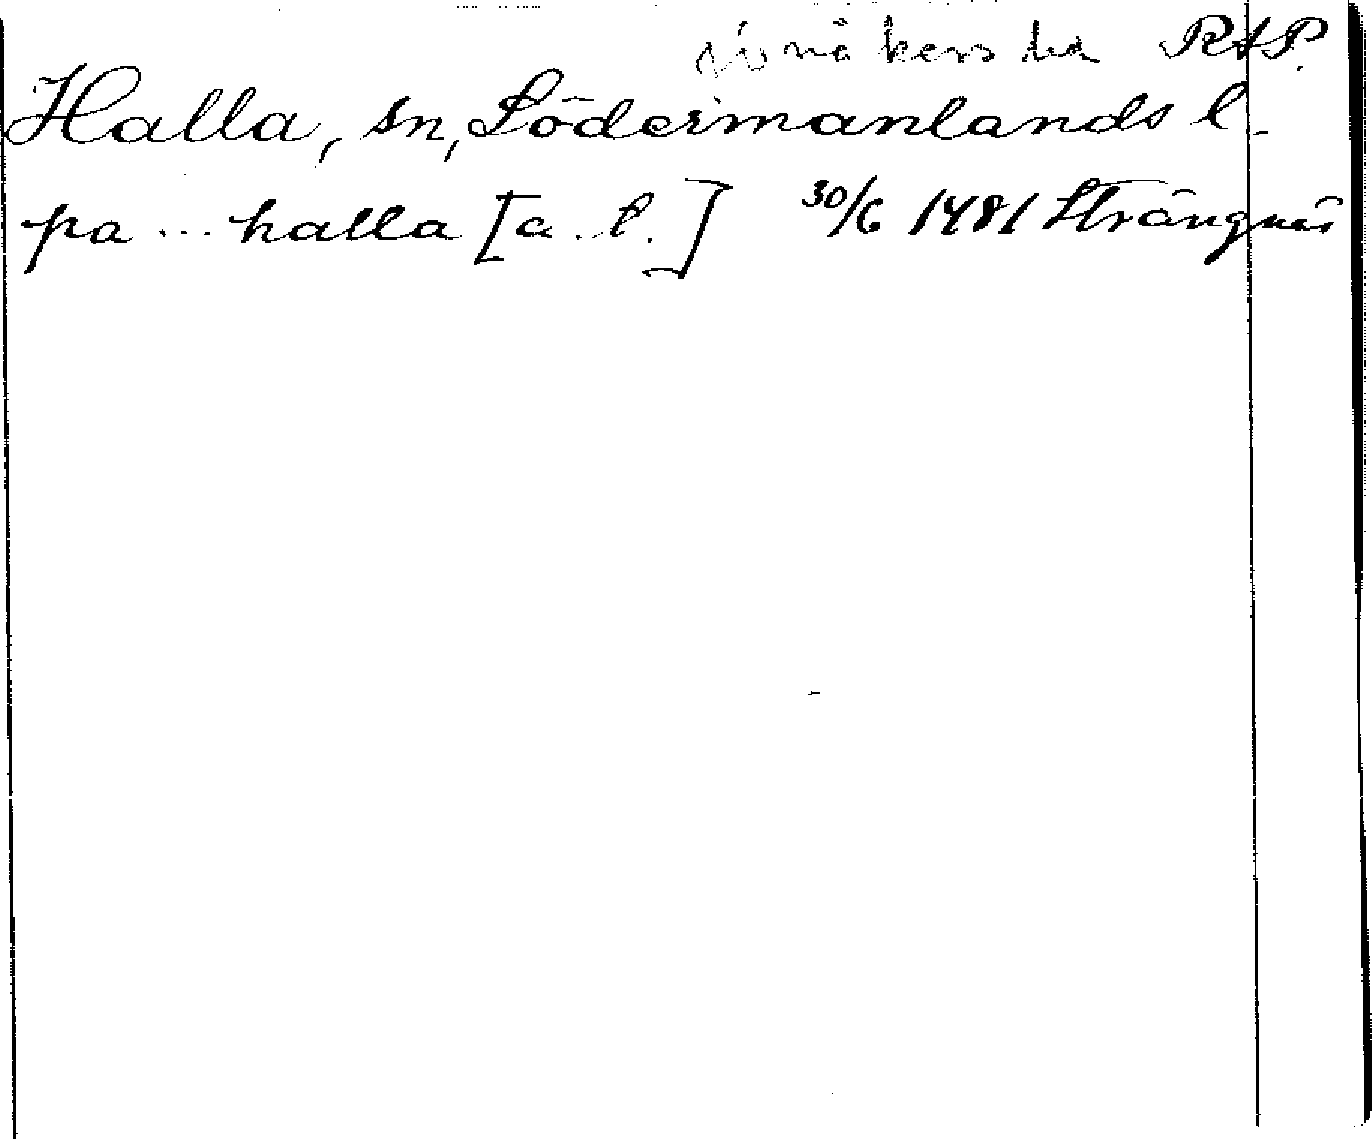 Jönåkers hd RAP.
Halla, sn, Södermanlands l.
pa ... halla [a. l.] 30/6 1481 Strängnäs